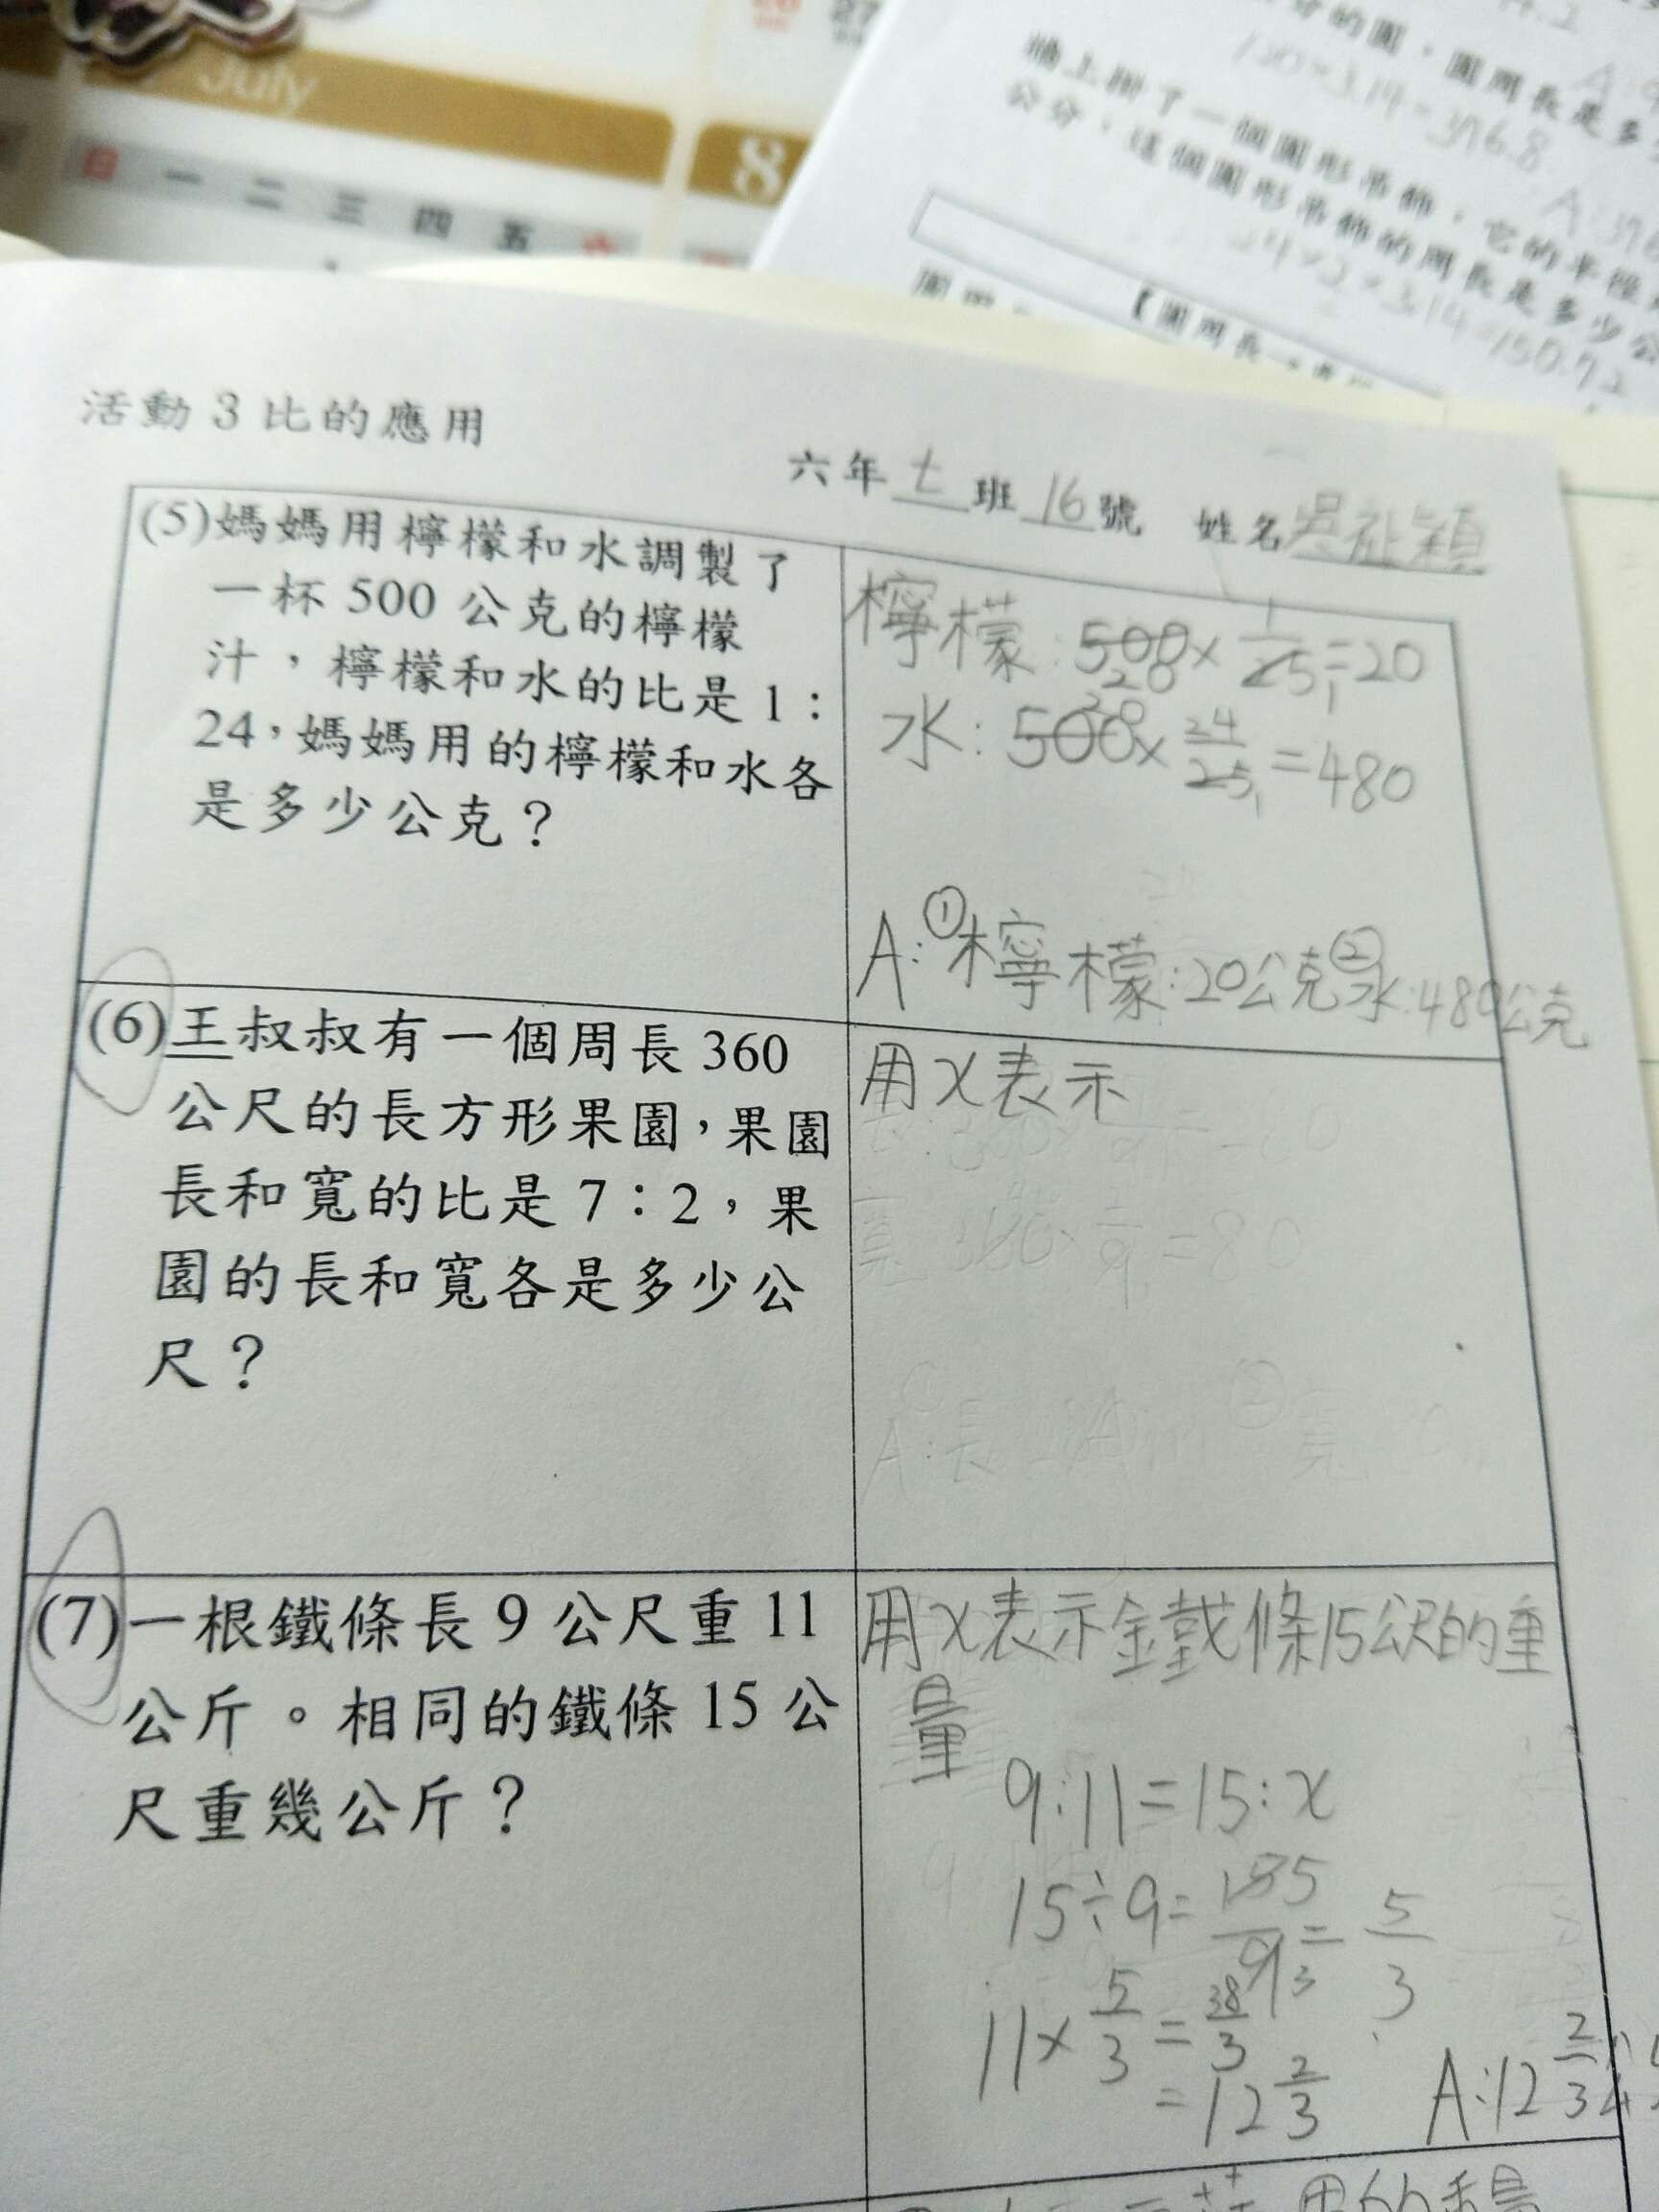 July
8
27
日 一 二 三 四 五 六
120×3.14=376.8
牆上掛了一個圓形吊飾，它的半徑
公分，這個圓形吊飾的周長是多少公
24×2×3.14=150.72
【圓周長
活動 3 比的應用
六年七班16號 姓名吳祉穎
(5)媽媽用檸檬和水調製了
一杯 500 公克的檸檬
汁，檸檬和水的比是 1：
24，媽媽用的檸檬和水各
是多少公克？
檸檬:500×1/25=20
20 1
水:500×24/25=480
20 1
A:①檸檬:20公克②水:480公克
(6)王叔叔有一個周長 360
公尺的長方形果園，果園
長和寬的比是 7：2，果
園的長和寬各是多少公
尺？
用x表示
寬 360×2/9=80
(7)一根鐵條長 9 公尺重 11
公斤。相同的鐵條 15 公
尺重幾公斤？
用x表示鐵條15公尺的重
量
9:11=15:x
15÷9=15/9=5/3
11×5/3=38/3
=12 2/3
A:12 2/3